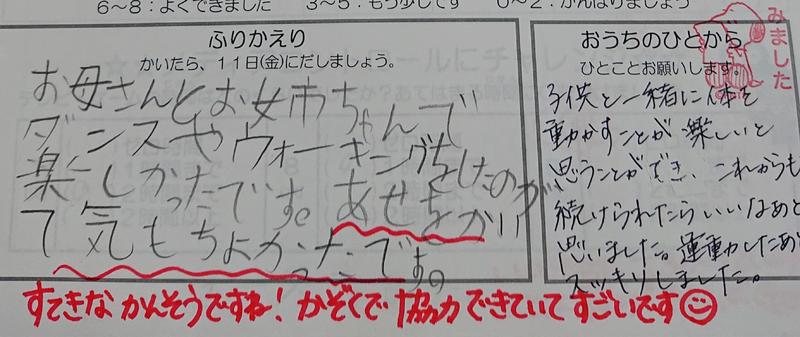 6～8：よくできました　3～5：もう少しです　0～2：がんばりましょう
ふりかえり
かいたら、11日(金)にだしましょう。
お母さんとお姉ちゃんで
ダンスやウォーキングをしたのが
楽しかったです。あせをかい
て気もちよかったです。
おうちのひとから
ひとことお願いします。
みました
子供と一緒に体を
動かすことが楽しいと
思うことができ、これからも
続けられたらいいなあと
思いました。運動したあ
スッキリしました。
すてきなかんそうですね！かぞくで協力できていてすごいです